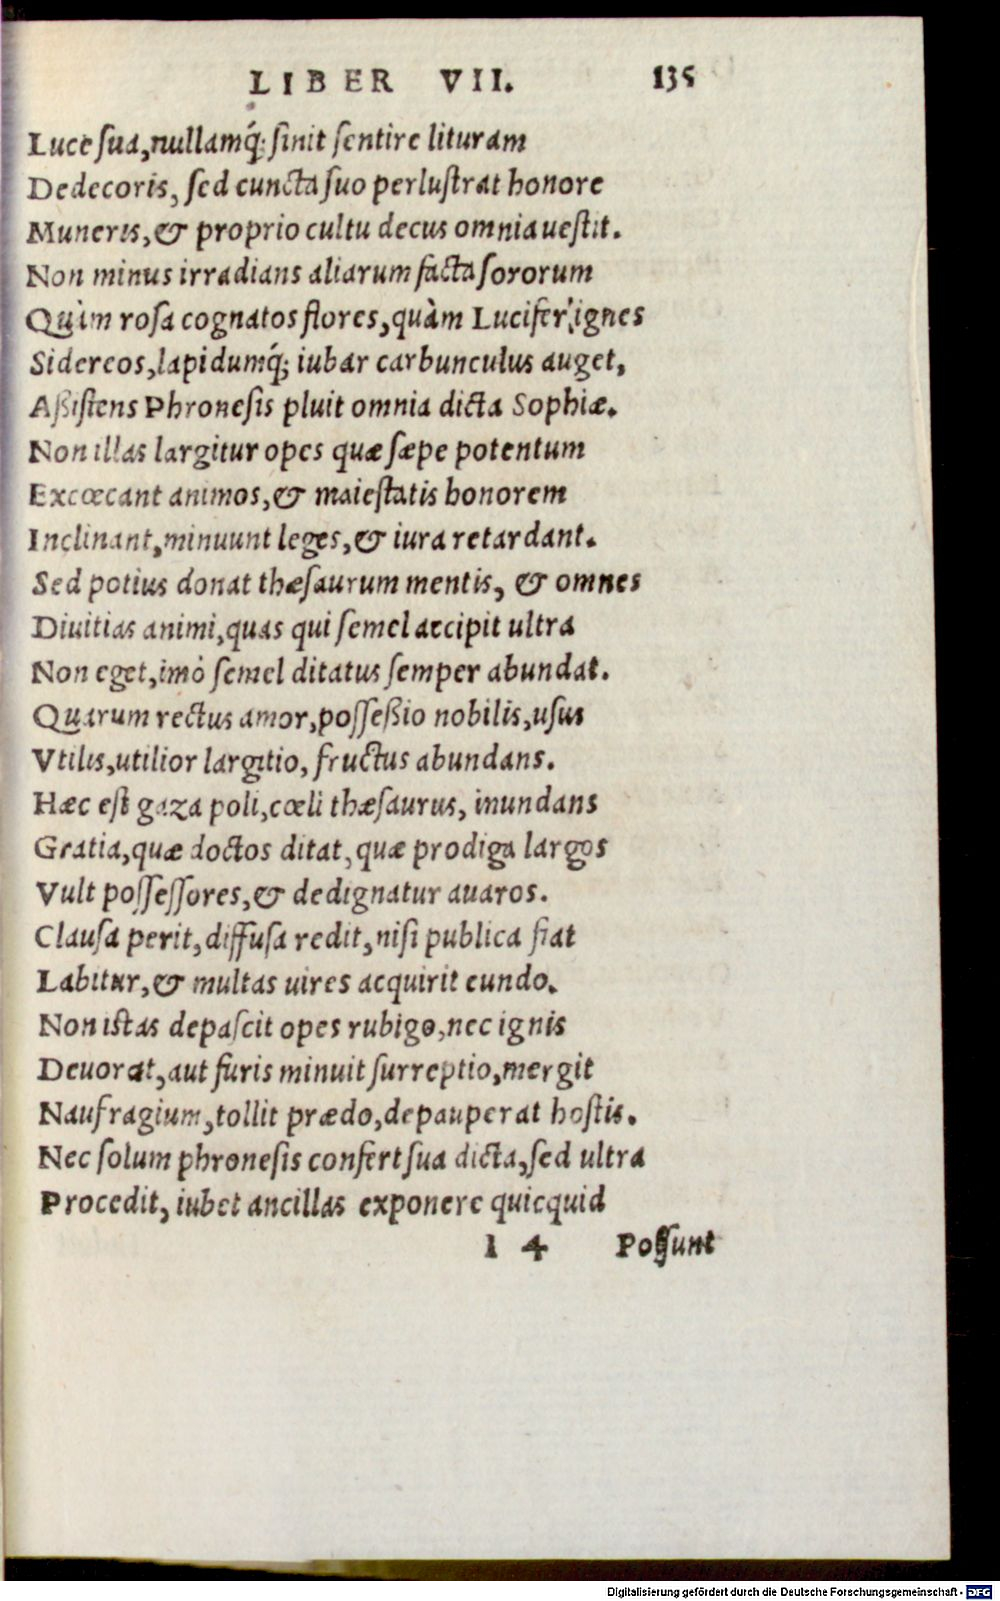 LIBER VII. 135
Luce sua, nullamq́; sinit sentire lituram
Dedecoris, sed cuncta suo perlustrat honore
Muneris, & proprio cultu decus omnia uestit.
Non minus irradians aliarum facta sororum
Quàm rosa cognatos flores, quàm Lucifer ignes
Sidereos, lapidumq́; iubar carbunculus auget,
Aßistens Phronesis pluit omnia dicta Sophiæ.
Non illas largitur opes quæ sæpe potentum
Excœcant animos, & maiestatis honorem
Inclinant, minuunt leges, & iura retardant.
Sed potius donat thæsaurum mentis, & omnes
Diuitias animi, quas qui semel accipit ultra
Non eget, imò semel ditatus semper abundat.
Quarum rectus amor, posseßio nobilis, usus
Vtilis, utilior largitio, fructus abundans.
Hæc est gaza poli, cœli thæsaurus, inundans
Gratia, quæ doctos ditat, quæ prodiga largos
Vult possessores, & dedignatur auaros.
Clausa perit, diffusa redit, nisi publica fiat
Labitur, & multas uires acquirit eundo.
Non istas depascit opes rubigo, nec ignis
Deuorat, aut furis minuit surreptio, mergit
Naufragium, tollit prædo, depauperat hostis.
Nec solum phronesis confert sua dicta, sed ultra
Procedit, iubet ancillas exponere quicquid
l 4 Possunt
Digitalisierung gefördert durch die Deutsche Forschungsgemeinschaft - DFG